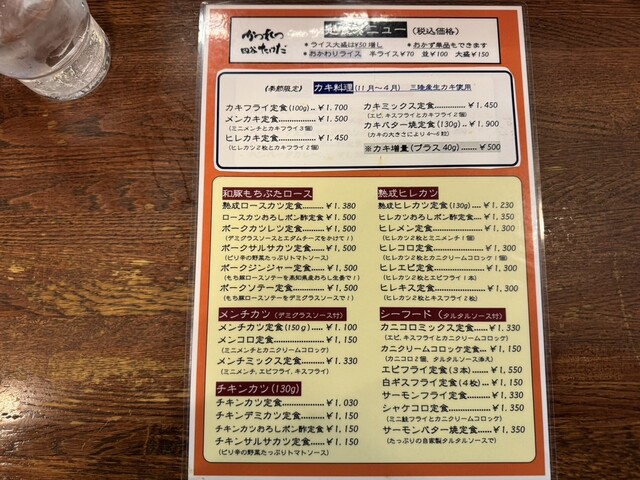 かつれつ
四谷たけだ
メニュー(税込価格)
★ライス大盛は¥50増し ★おかず単品もできます
★おかわりライス 半ライス¥70 並¥100 大盛¥150
(季節限定) カキ料理(11月~4月) 三陸産生カキ使用
カキフライ定食(100g)..¥1,700
メンカキ定食..........¥1,500
(ミニメンチとカキフライ3個)
ヒレカキ定食..........¥1,450
(ヒレカツ2枚とカキフライ2個)
カキミックス定食..........¥1,450
(エビ、キスフライとカキフライ2個)
カキバター焼定食(130g)..¥1,900
(カキの大きさにより4~6粒)
※カキ増量(プラス40g)......¥500
和豚もちぶたロース
熟成ロースカツ定食..........¥1,380
ロースカツおろしポン酢定食¥1,500
ポークカツレツ定食..........¥1,500
(デミグラスソースとエダムチーズをかけて!)
ポークサルサカツ定食......¥1,500
(ピリ辛の野菜たっぷりトマトソース)
ポークジンジャー定食......¥1,500
(もち豚ロースソテーを高知県産おろし生姜で!)
ポークソテー定食..........¥1,500
(もち豚ロースソテーをデミグラスソースで!)
メンチカツ(デミグラスソース付)
メンチカツ定食(150g)....¥1,100
メンコロ定食..........¥1,150
(ミニメンチとカニクリームコロッケ)
メンチミックス定食..........¥1,330
(ミニメンチ、エビフライ、キスフライ)
チキンカツ(130g)
チキンカツ定食..........¥1,030
チキンデミカツ定食..........¥1,150
チキンカツおろしポン酢定食...¥1,150
チキンサルサカツ定食......¥1,150
(ピリ辛の野菜たっぷりトマトソース)
熟成ヒレカツ
熟成ヒレカツ定食(130g)....¥1,230
ヒレカツおろしポン酢定食....¥1,350
ヒレメン定食..........¥1,300
(ヒレカツ2枚とミニメンチ1個)
ヒレコロ定食..........¥1,300
(ヒレカツ2枚とカニクリームコロッケ1個)
ヒレエビ定食..........¥1,300
(ヒレカツ2枚とエビフライ1本)
ヒレキス定食..........¥1,300
(ヒレカツ2枚とキスフライ2枚)
シーフード(タルタルソース付)
カニコロミックス定食......¥1,330
(エビ、キスフライとカニクリームコロッケ)
カニクリームコロッケ定食...¥1,150
(カニコロ2個、タルタルソース添え)
エビフライ定食(3本)......¥1,550
白ギスフライ定食(4枚)....¥1,150
サーモンフライ定食..........¥1,330
シャケコロ定食..........¥1,350
(ミニ鮭フライとカニクリームコロッケ)
サーモンバター焼定食......¥1,350
(たっぷりの自家製タルタルソースで)